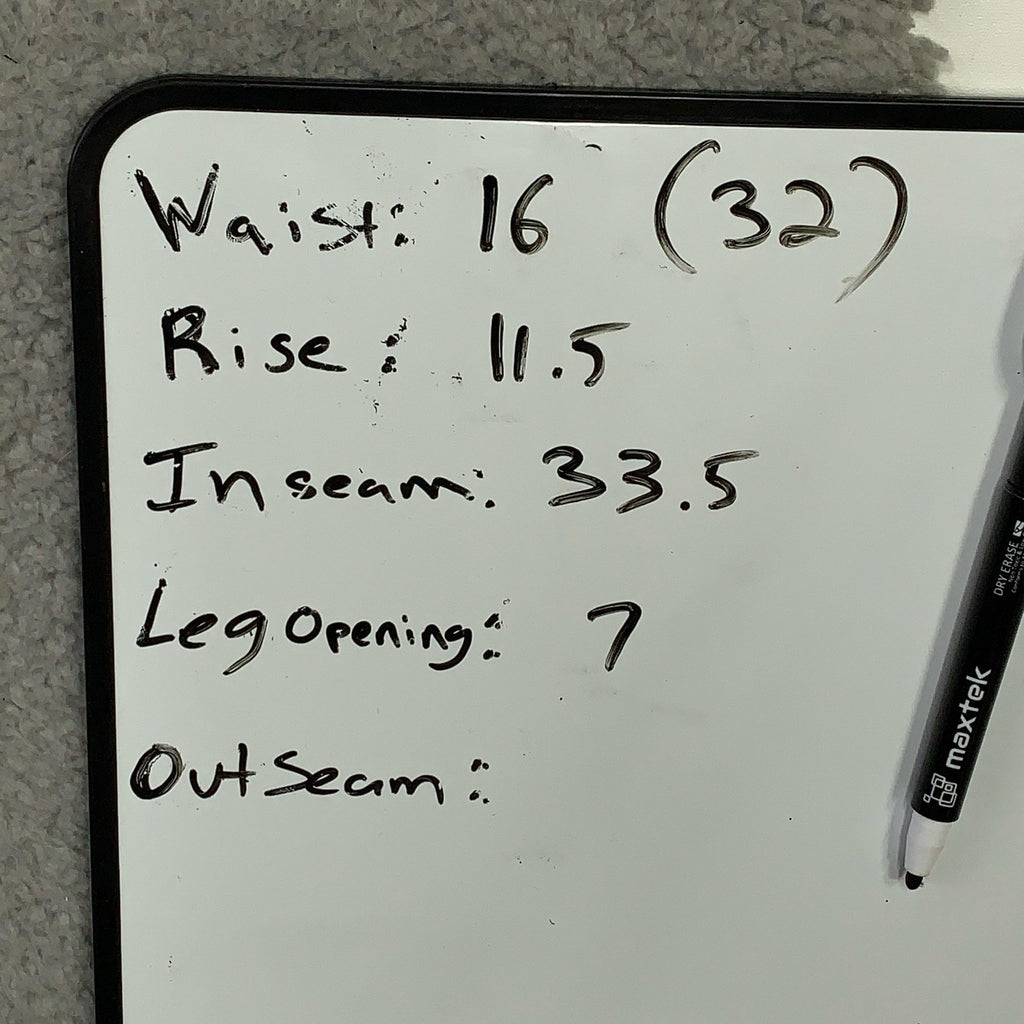 Waist: 16 (32)
Rise: 11.5
Inseam: 33.5
Leg Opening: 7
OutSeam:
DRY ERASE
maxtek